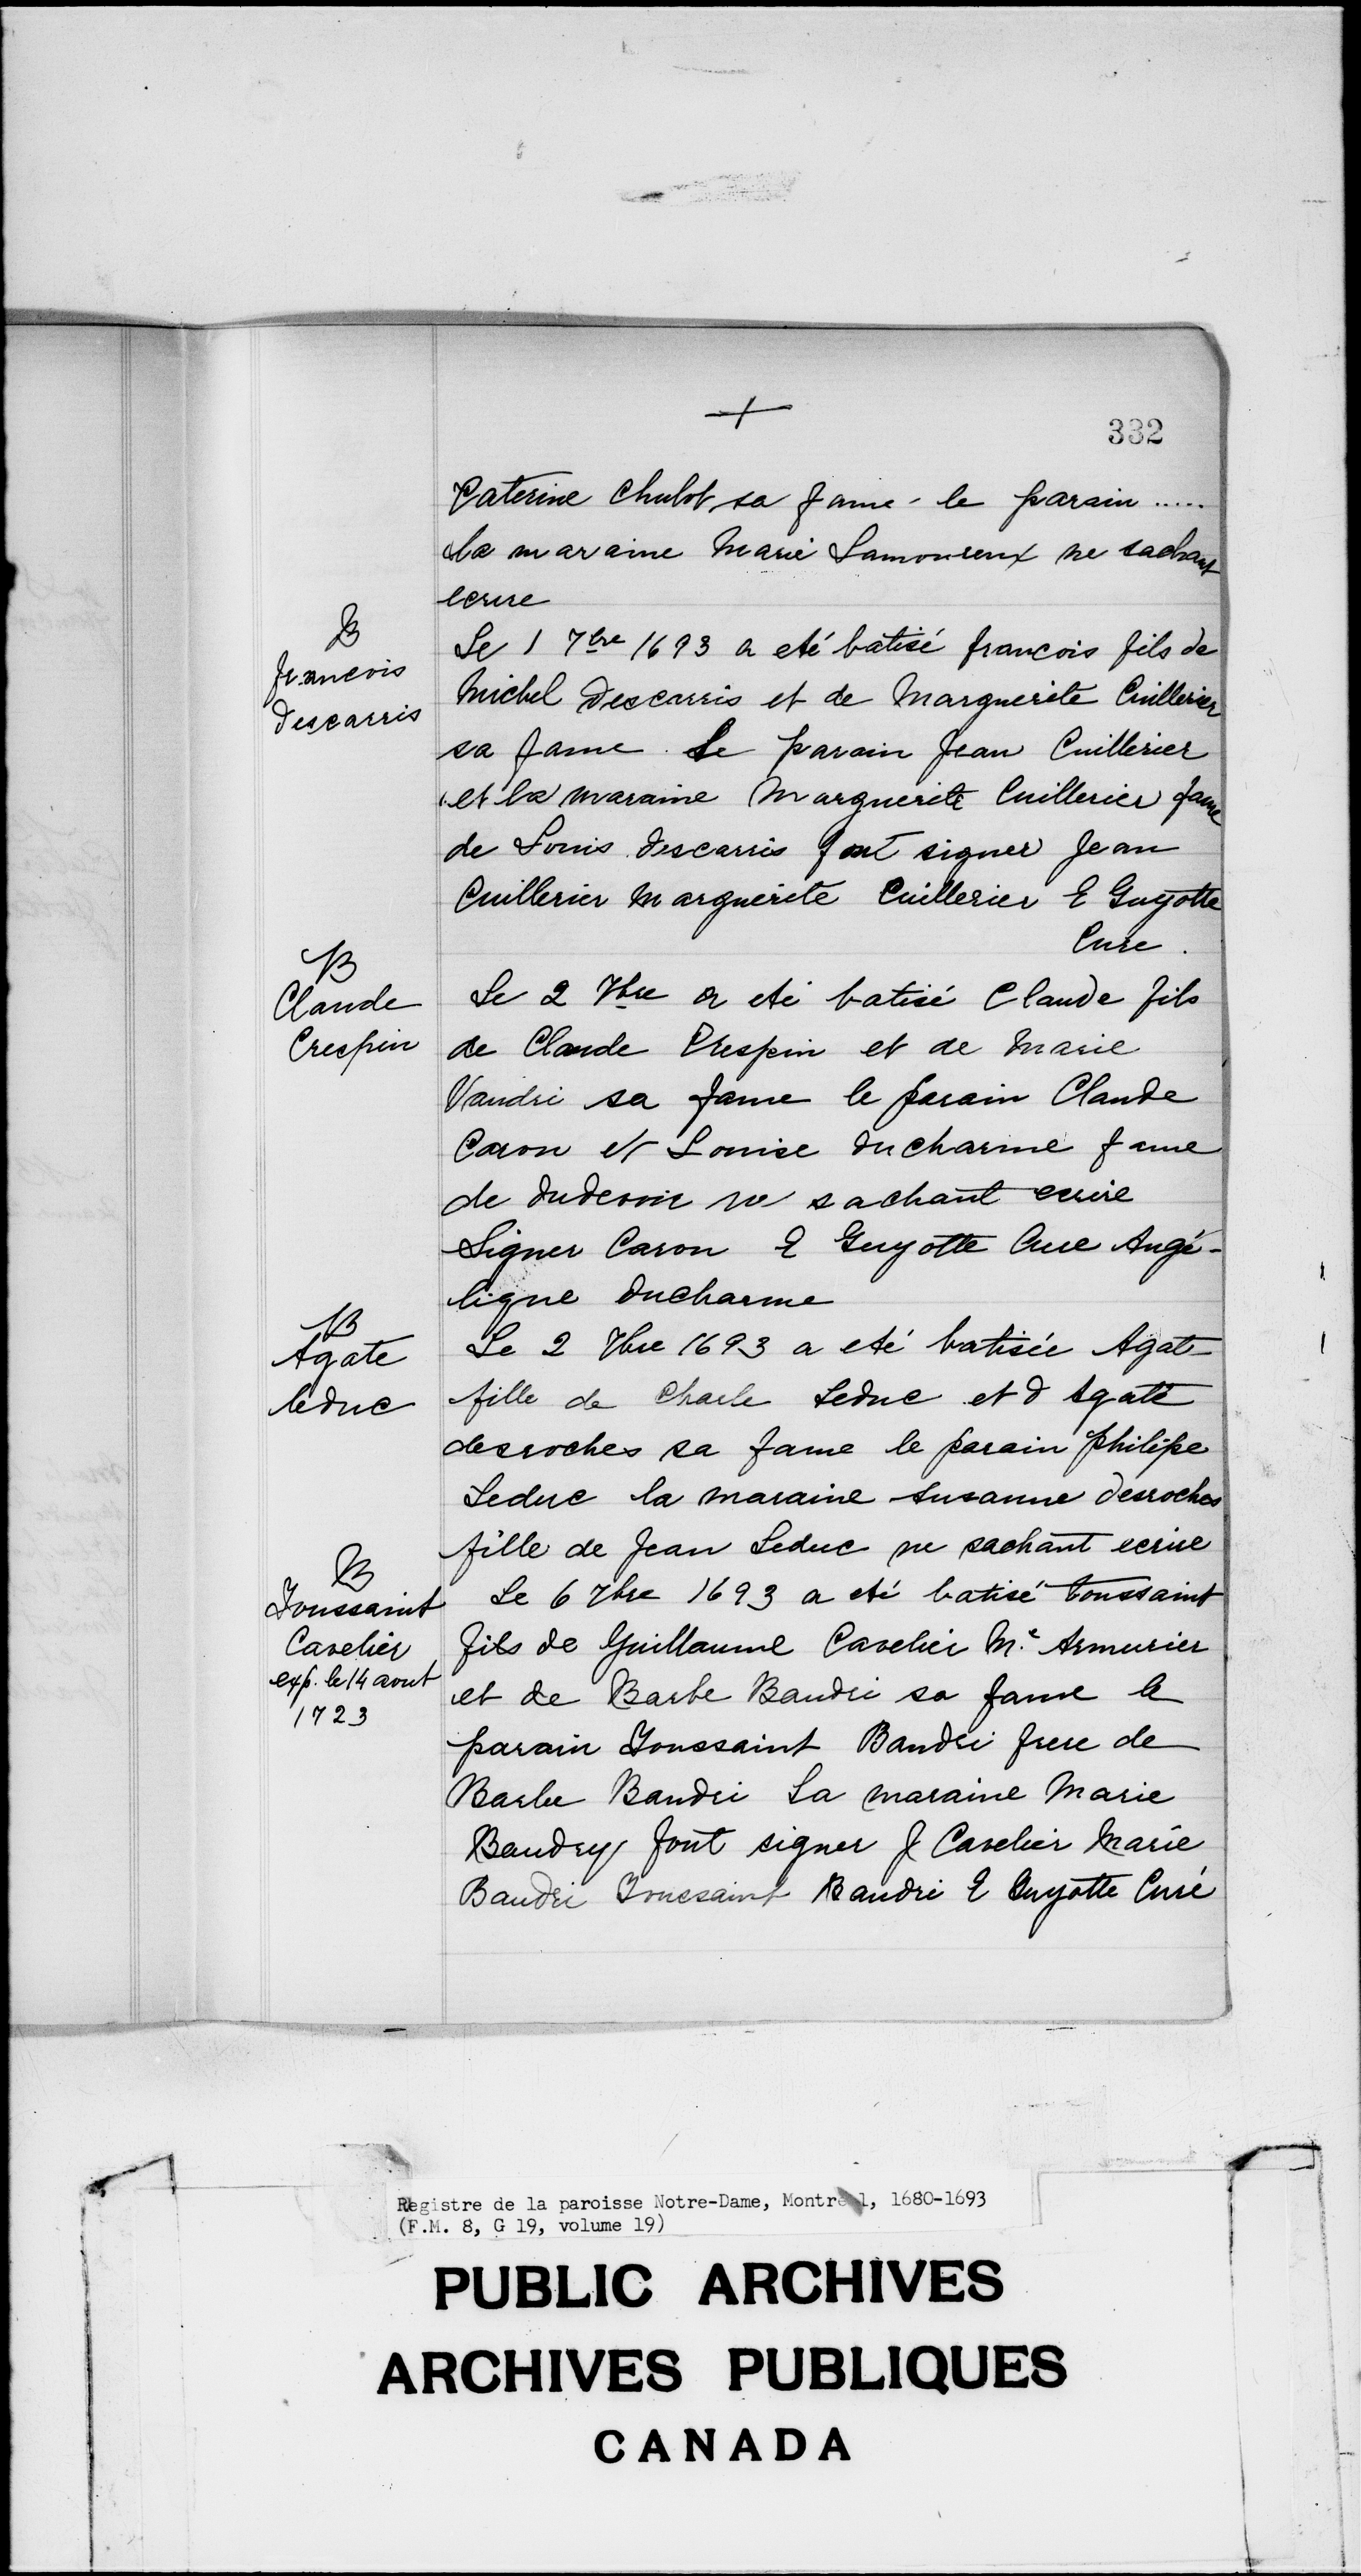 332
Caterine Chulot sa fame - le parain .....
la maraine Marie Lamoureux ne sachant
ecrire
B
francois
Descarris
Le 1 7bre 1693 a eté batisé francois fils de
Michel Descarris et de Marguerite Cuillerier
sa fame. Le parain Jean Cuillerier
et la maraine Marguerite Cuillerier fame
de Louis Descarris font signer Jean
Cuillerier Marguerite Cuillerier E Guyotte
Cure.
B
Claude
Crespin
Le 2 7bre a eté batisé Claude fils
de Claude Crespin et de Marie
Vandri sa fame le parain Claude
Caron et Louise Ducharme fame
de dudevoir ne sachant ecrire
Signer Caron E Guyotte Cure Angé-
lique Ducharme
B
Agate
leduc
Le 2 7bre 1693 a eté batisée Agate
fille de Charle Leduc et d Agate
desroches sa fame le parain Philipe
Leduc la maraine Susanne desroches
fille de Jean Leduc ne sachant ecrire
B
Toussaint
Cavelier
exp. le 14 aout
1723
Le 6 7bre 1693 a eté batisé Toussaint
fils de Guillaume Cavelier Me Armurier
et de Barbe Baudri sa fame le
parain Toussaint Baudri frere de
Barbe Baudri La maraine Marie
Baudry font signer J Cavelier Marie
Baudri Toussaint Baudri E Guyotte Curé
Registre de la paroisse Notre-Dame, Montréal, 1680-1693
(F.M. 8, G 19, volume 19)
PUBLIC ARCHIVES
ARCHIVES PUBLIQUES
CANADA